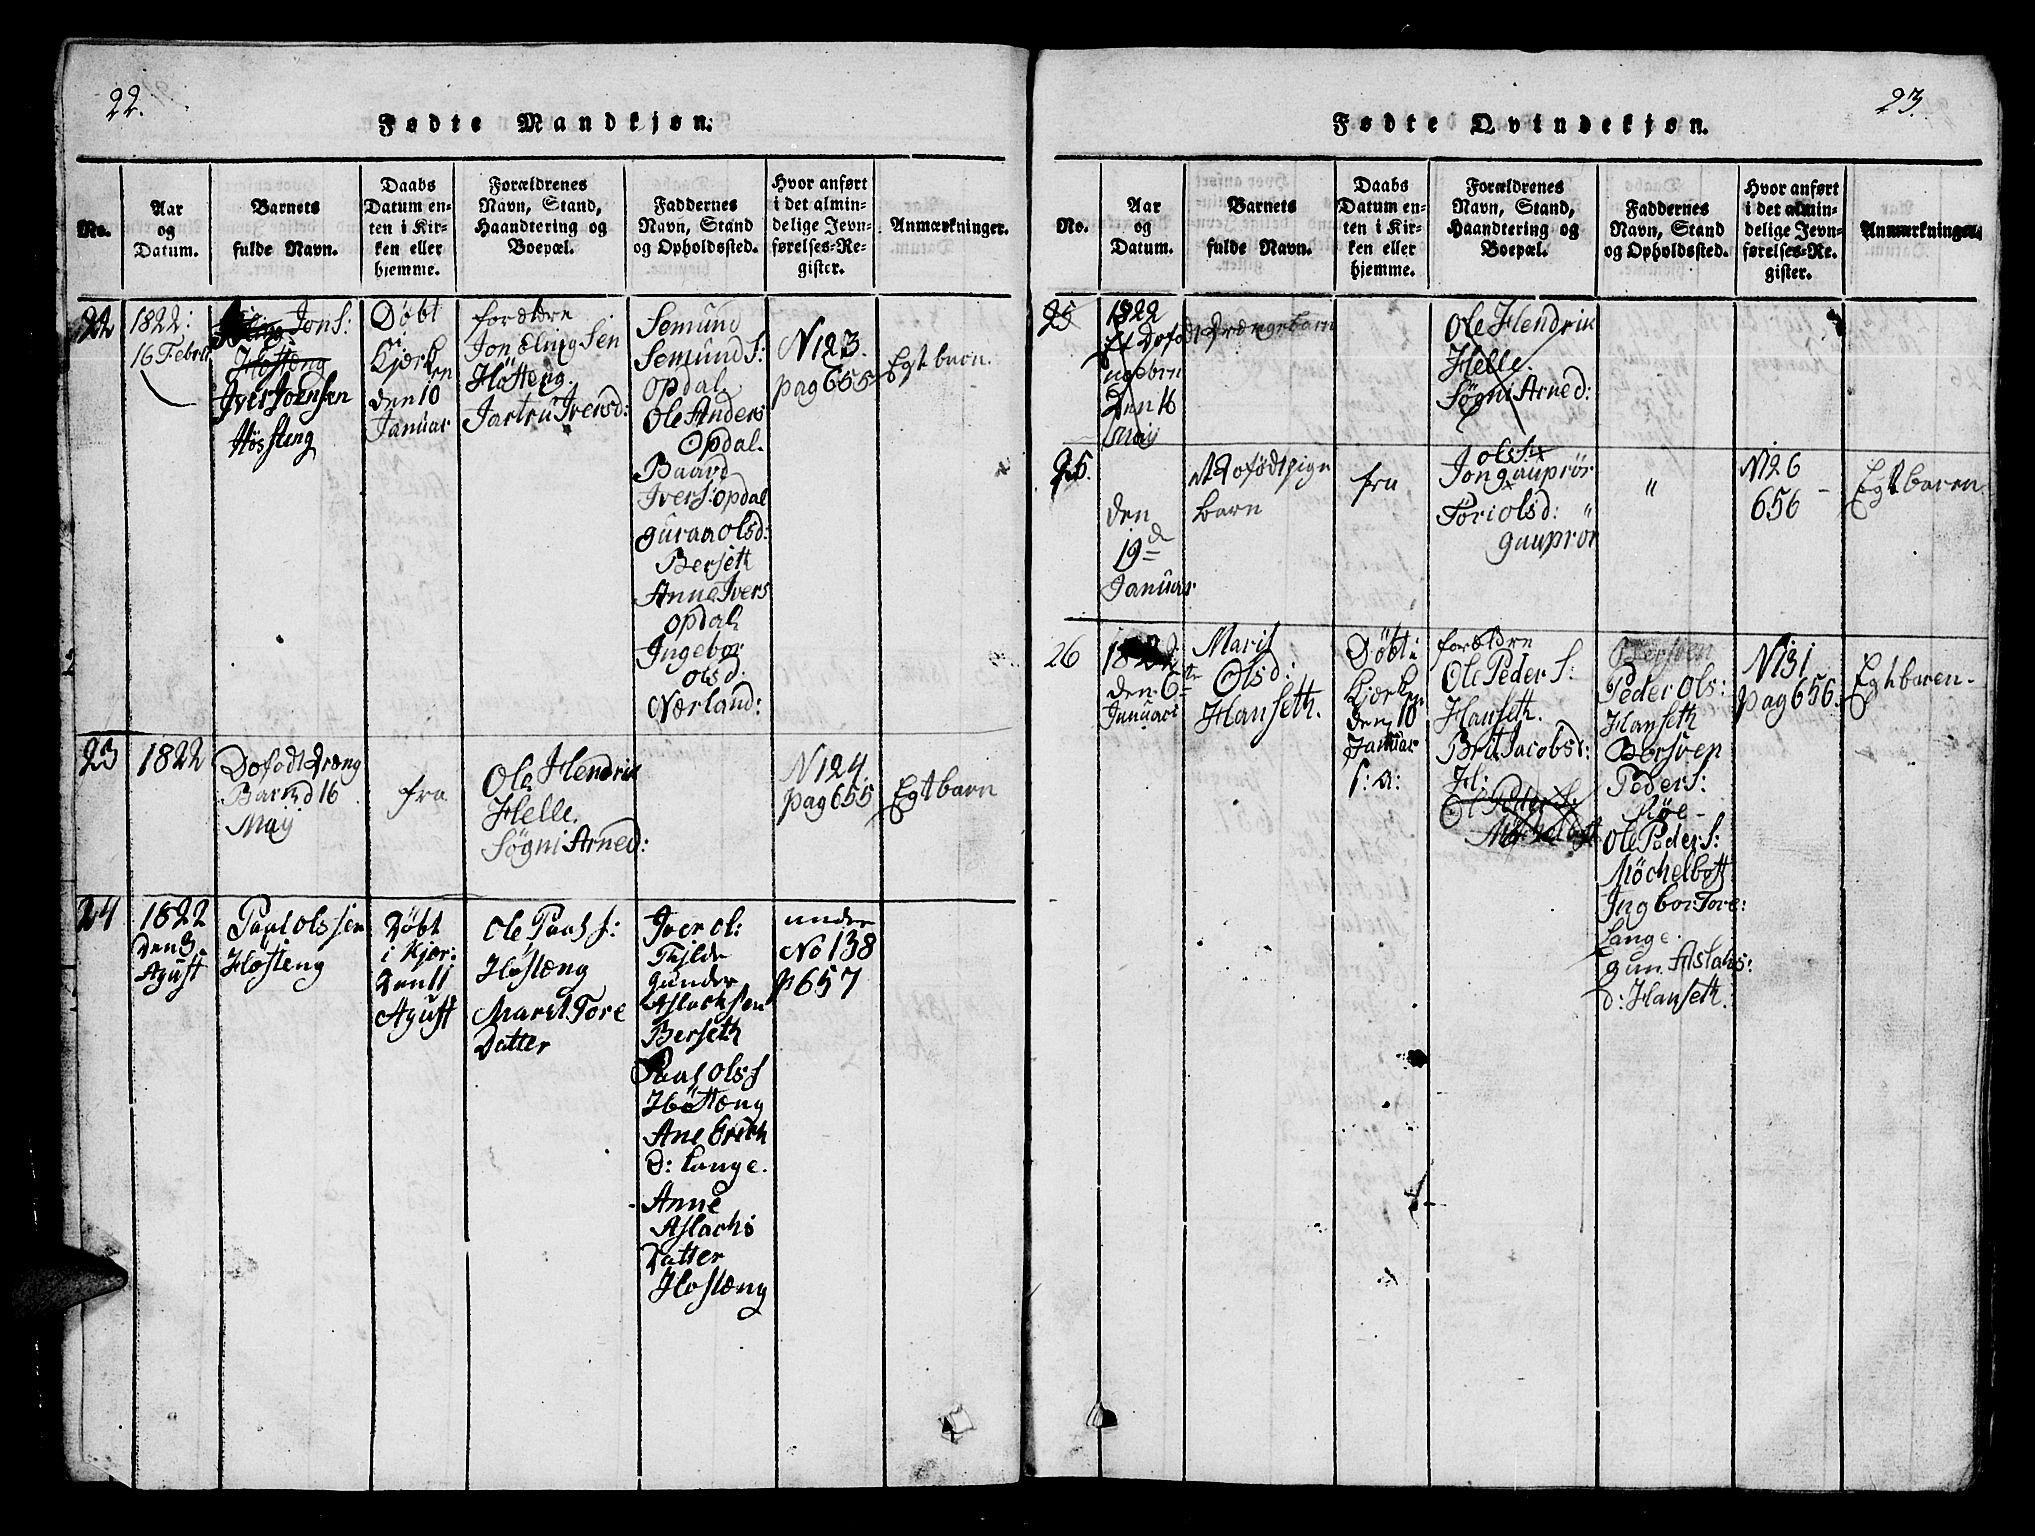 22.
Fødte Mandkjøn.
No.
Aar
og
Datum.
Barnets
fulde Navn.
Daabs
Datum en-
ten i Kir-
ken eller
hjemme.
Forældrenes
Navn, Stand,
Haandtering og
Boepæl.
Faddernes
Navn, Stand
og Opholdssted.
Hvor anført
i det almin-
delige Jevn-
førelses-Re-
gister.
Anmærkninger.
22
1822:
16 Februr
Jons:
Høsteng
Iver Joensen
Høssteng
Døbt
i Kjerken
den 10
Januar
forældre
Jon Elingsen
Høsteng.
Jartru Iversd:
Semund
Semunds:
Opdal
Ole Anders
Opdal.
Baard
Ivers: Opdal
guraa Olsd:
Berseth
Anne Ivers
Opdal
Ingebor
Olsd:
Nærland:
N 123
pag 655
Egt barn.
23
1822
Dofodt Dræng
Barn d 16
Maij
fra
Ole Hendrik
Helle.
Søgni Arned:
N 124
pag 655
Egt barn
24
1822
Den 3
Agust
Paal Olssen
Høsteng
Døbt
i Kjer:
Den 11
Agust
Ole Paals:
Høstæng
Marit Tore
Datter
Iver Ol:
Tijlde
gunder
Aslachsen
Berseth
Paal Olss
Høstæng
Ane Erich
D: Lange.
Anne
Aslachs
Datter
Høstæng
under
No 138
p 657
23.
Fødte Qvindekjøn.
No.
Aar
og
Datum.
Barnets
fulde Navn.
Daabs
Datum en-
ten i Kir-
ken eller
hjemme.
Forældrenes
Navn, Stand,
Haandtering og
Boepæl.
Faddernes
Navn, Stand
og Opholdssted.
Hvor anført
i det almin-
delige Jevn-
førelses-Re-
gister.
Anmærkninger.
25
1822
Et Dofødt Drængebarn
Den 16
Maij
Ole Hendrik
Helle.
Søgni Arned:
25.
den
19d
Januar
Et Dofødt pige
barn
fra
Ols:
Jon gauprør
Tori Olsd: "
gauprør
"
N 126
656
Egt baren
26
182
den 6te
Januari
Marit
Olsd:
Hanseth.
Døbt i
Kjerken
den 10
Januar
s: a:
forældre
Ole Peders:
Hanseth.
Brit Jacobsd:
H:
Ol Peders:
Möchelbost
Peder Ols:
Hanseth
Bersvep
Peders:
Røe -
Ole Peders:
Möchelbost
Ingbor Tore:
Lange.
gun. Aslachs:
d: Hanseth.
N 131
pag 656.
Egt baren.